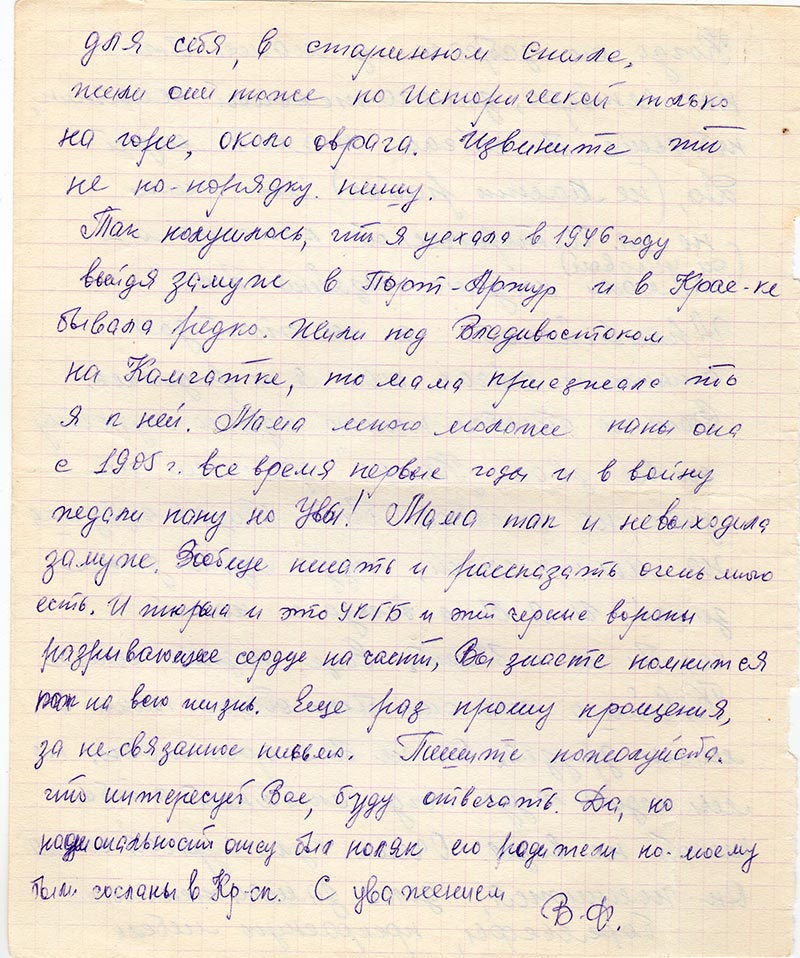 для себя, в старинном стиле,
жили они тоже по Исторической только
на горе, около оврага. Извините что
не по-порядку пишу.
Так получилось, что я уехала в 1946 году
выйдя замуж в Порт-Артур и в Крас-ке
бывала редко. Жили под Владивостоком
на Камчатке, то мама приезжала то
я к ней. Мама много моложе папы она
с 1905 г. все время первые годы и в войну
ждали папу но Увы! Мама так и не выходила
замуж. Вообще писать и рассказать очень много
есть. И тюрьма и это УКГБ и эти черные вороны
разрывающие сердце на части, Вы знаете помнится
на всю жизнь. Еще раз прошу прощения,
за не связанное письмо. Пишите пожалуйста.
что интересует Вас, буду отвечать. Да, по
национальности отец был поляк его родители по-моему
были сосланы в Кр-ск. С уважением
В.Ф.